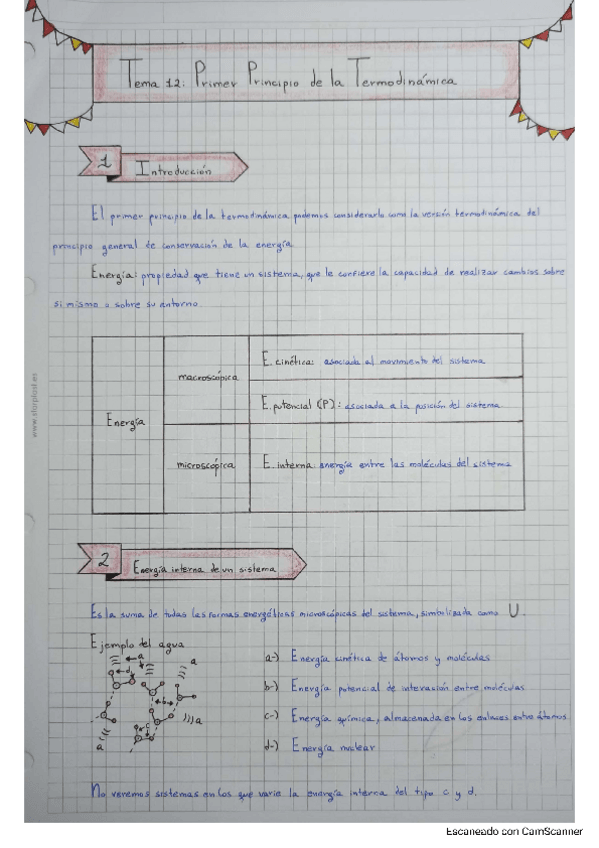 Tema 12: Primer Principio de la Termodinámica
1 Introducción
El primer principio de la termodinámica podemos considerarlo como la versión termodinámica del
principio general de conservación de la energía.
Energía: propiedad que tiene un sistema, que le confiere la capacidad de realizar cambios sobre
si mismo o sobre su entorno.
Energía
macroscópica
E. cinética: asociada al movimiento del sistema
E. potencial (P): asociada a la posición del sistema
microscópica
E. interna: energía entre las moléculas del sistema
www.starplast.es
2 Energía interna de un sistema
Es la suma de todas las formas energéticas microscópicas del sistema, simbolizada como U.
Ejemplo del agua
a
d
a
b
c
a
a
a-) Energía cinética de átomos y moléculas
b-) Energía potencial de interacción entre moléculas
c-) Energía química, almacenada en los enlaces entre átomos
d-) Energía nuclear
No veremos sistemas en los que varíe la energía interna del tipo c y d.
Escaneado con CamScanner